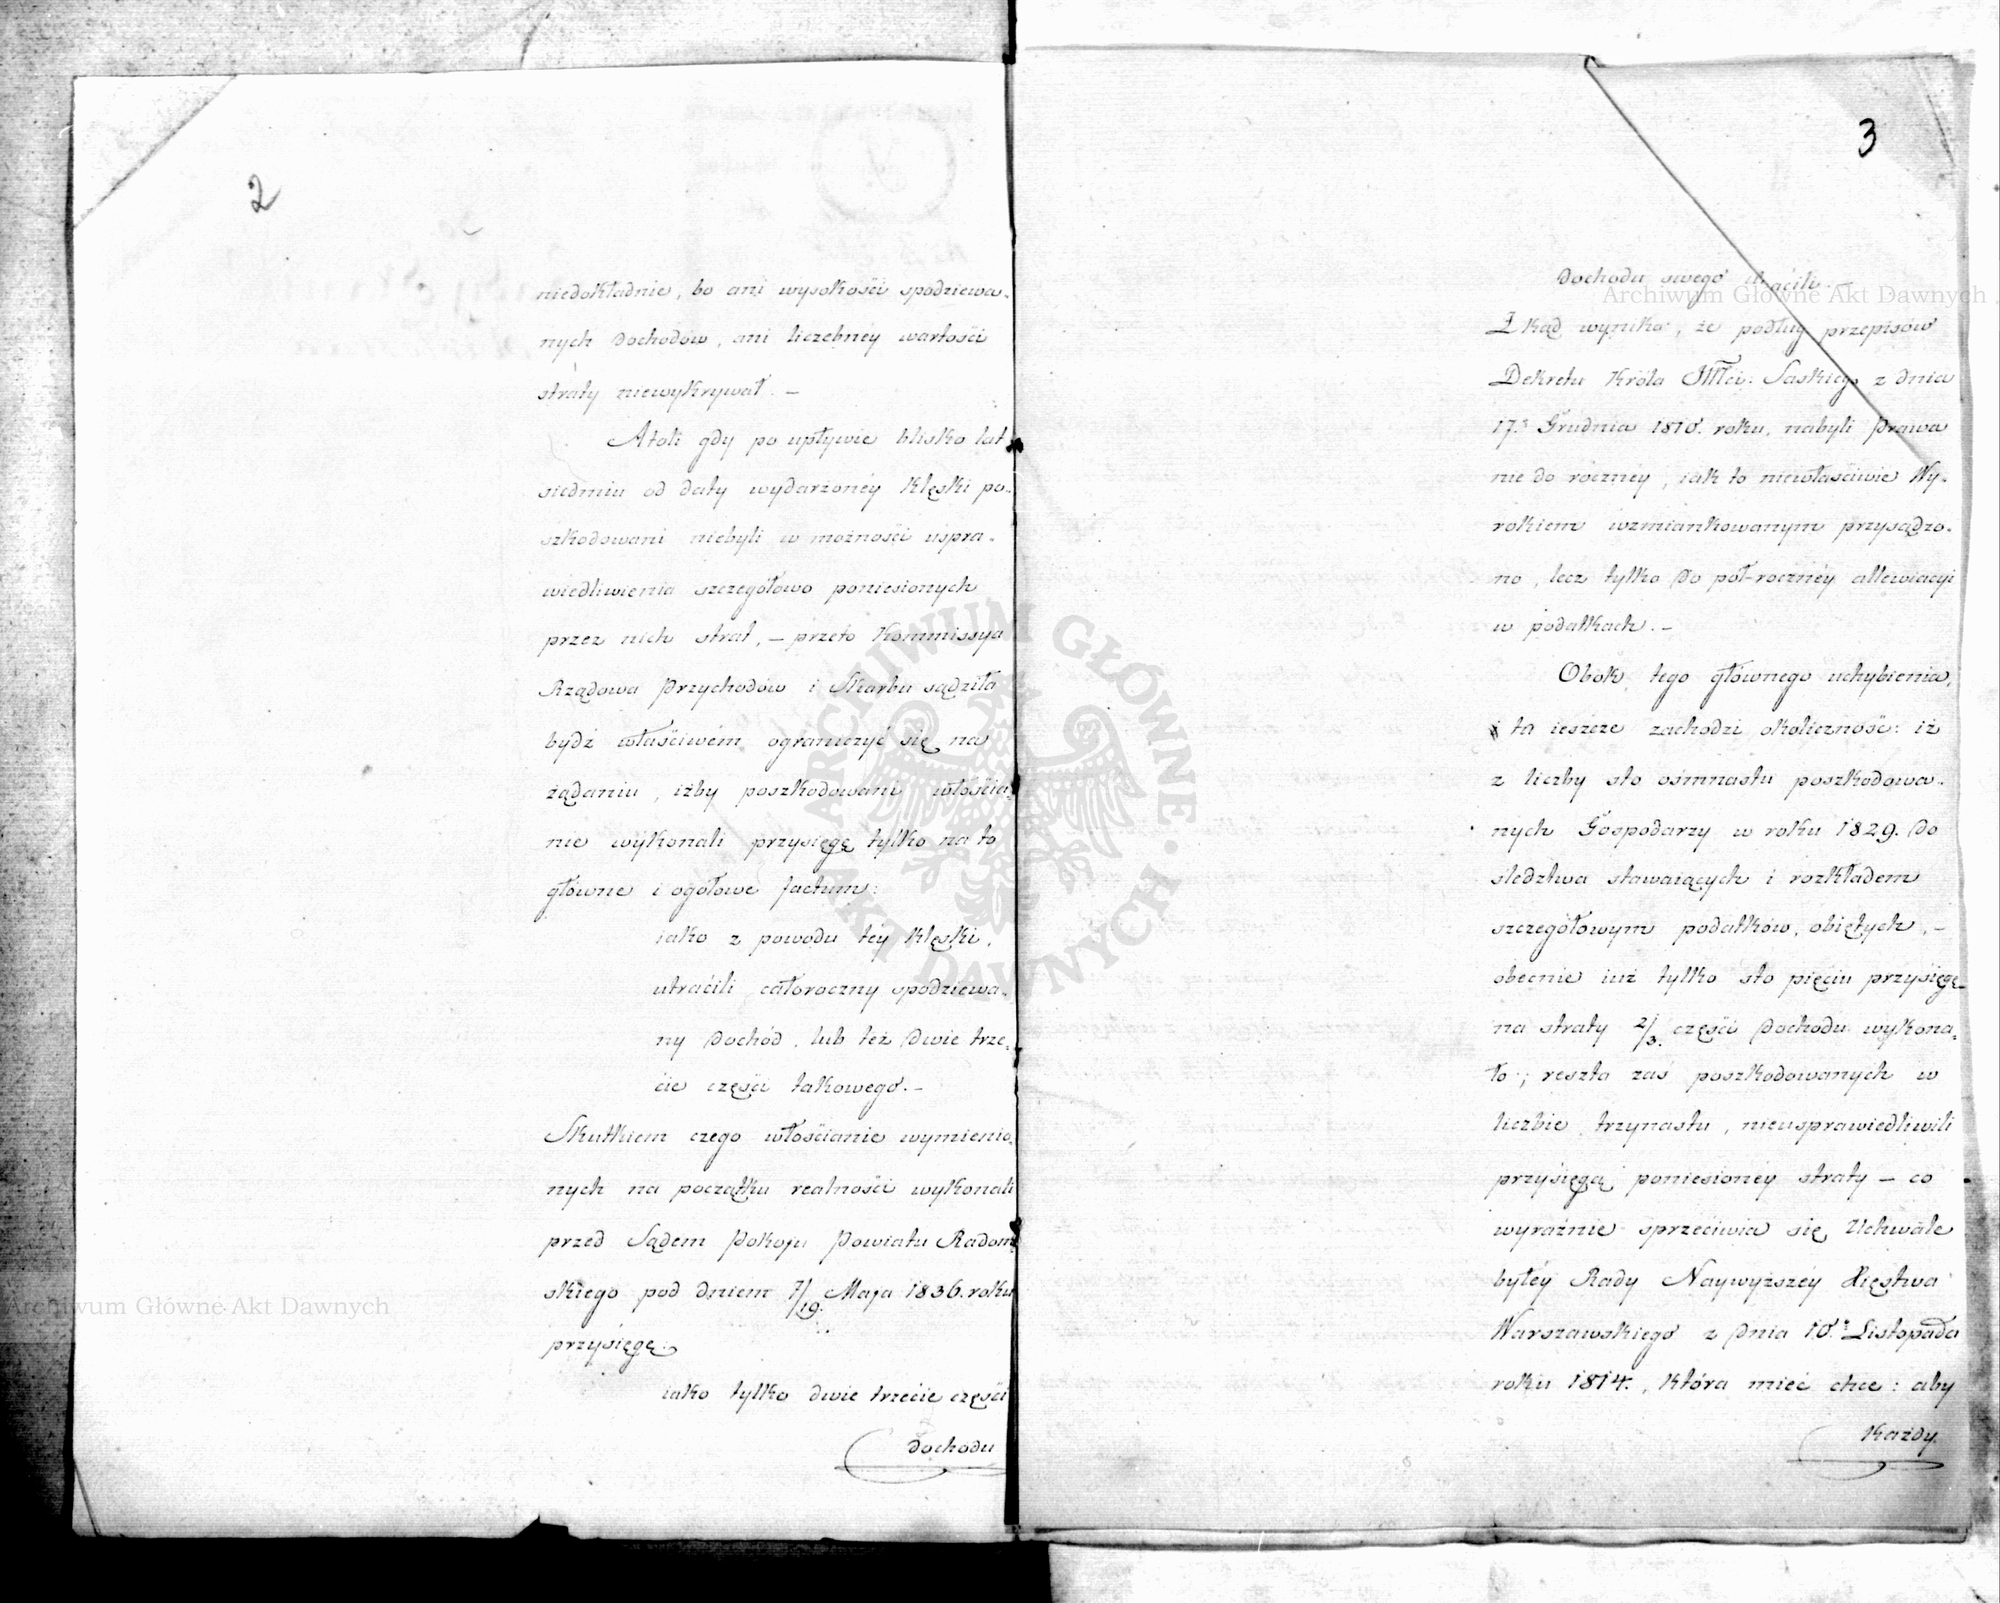 2
niedokładnie, bo ani wysokości spodziewa-
nych dochodów, ani liczebnéy wartości
straty niewykrywał. –
Atoli gdy po upływie blisko lat
siedmiu od daty wydarzonéy klęski po-
szkodowani niebyli w możności uspra-
wiedliwienia szczegółowo poniesionych
przez nich strat, – przeto Kommissya
Rządowa Przychodów i Skarbu sądziła
bydź właściwém ograniczyć się na
żądaniu, iżby poszkodowani włościa-
nie wykonali przysięgę tylko na to
główne i ogółowe factum:
iako z powodu téy klęski,
utracili całoroczny spodziewa-
ny dochód, lub też dwie trze-
cie części takowego. –
Skutkiem czego włościanie wymienio-
nych na początku realności wykonali
przed Sądem Pokoju Powiatu Radom-
skiego pod dniem 7/19. Maja 1836. roku
przysięgę:
iako tylko dwie trzecie części
dochodu
3
dochodu swego utracili. –
Zkąd wynika, że podług przepisów
Dekretu Króla JMci: Saskiego z dnia
17. Grudnia 1810. roku, nabyli prawa
nie do rocznéy, iak to niewłaściwie Wy-
rokiem wzmiankowanym przysądzo-
no, lecz tylko do pół-rocznéy allewiacyi
w podatkach. –
Obok tego głównego uchybienia,
i ta ieszcze zachodzi okoliczność: iż
z liczby sto ośmnastu poszkodowa-
nych Gospodarzy w roku 1829. do
śledztwa stawaiących i rozkładem
szczegółowym podatków, obiętych, –
obecnie iuż tylko sto pięciu przysięgę
na straty 2/3. części dochodu wykona-
ło; reszta zaś poszkodowanych w
liczbie trzynastu, nieusprawiedliwili
przysięgą poniesionéy straty – co
wyraźnie sprzeciwia się Uchwale
byłéy Rady Naywyższéy Xięstwa
Warszawskiego z dnia 10. Listopada
roku 1814., która mieć chce: aby
każdy.
Archiwum Główne Akt Dawnych
Archiwum Główne Akt Dawnych
ARCHIWUM GŁÓWNE · AKT DAWNYCH ·